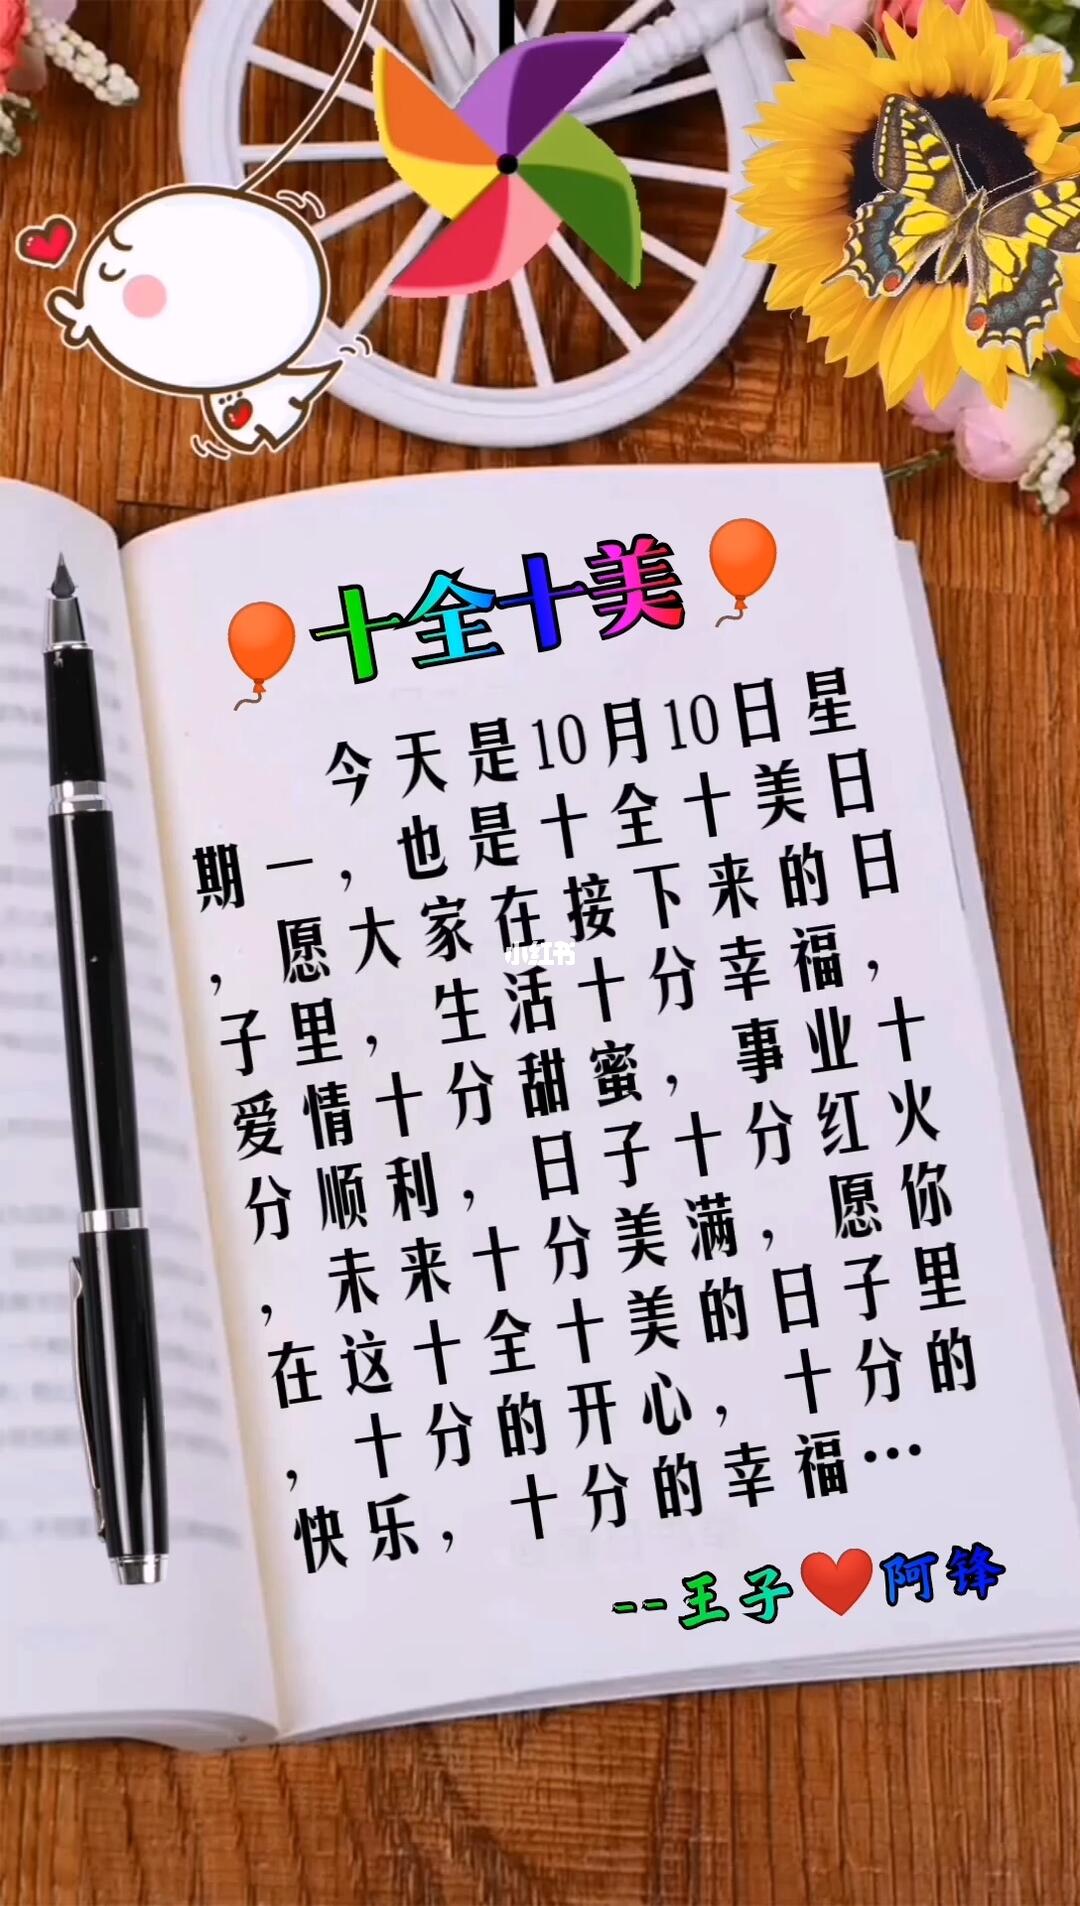 十全十美
今天是10月10日星
期一，也是十全十美日
，愿大家在接下来的日
子里，生活十分幸福，
爱情十分甜蜜，事业十
分顺利，日子十分红火
，未来十分美满，愿你
在这十全十美的日子里
，十分的开心，十分的
快乐，十分的幸福…
--王子❤阿锋
小红书